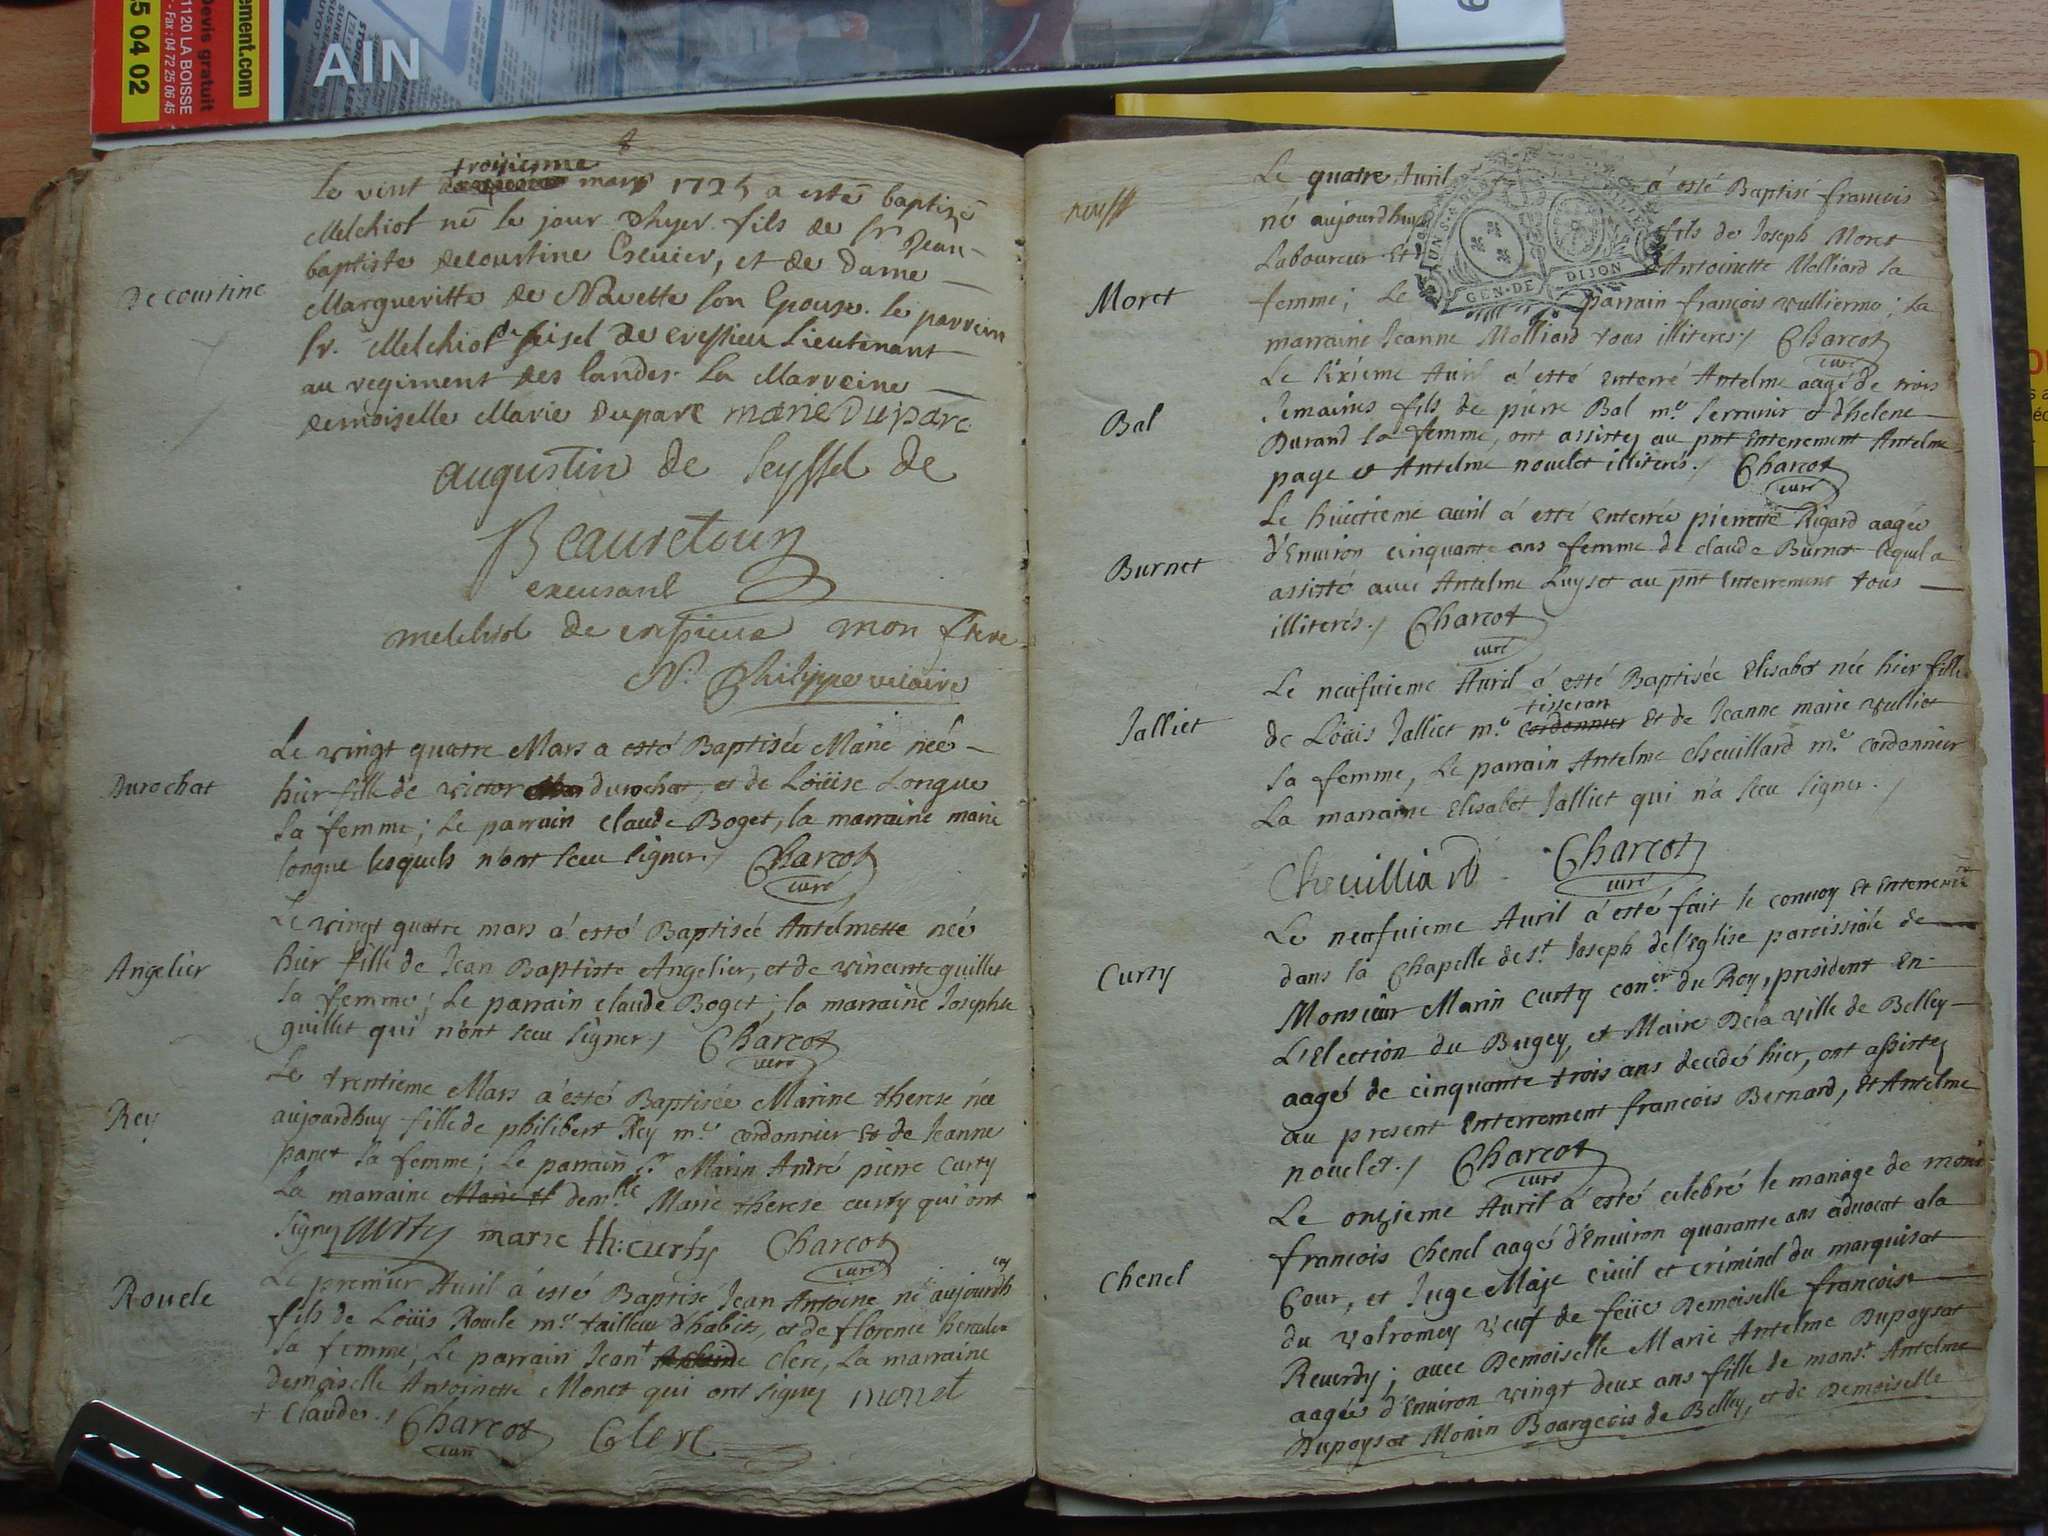 ement.com
Devis gratuit
1120 LA BOISSE
Fax : 04 72 25 06 45
5 04 02
AIN
8
troisienme
le vint mars 1725 a esté baptizé
Melchiol né le jour d'hyer fils de sr Jean
baptiste decourtine Escuier, et de Dame
Decourtine
Margueritte de son Epouse. le parrein
sr. Melchiol de seisel de cressieu Lieutenant
au regiment des landes. La Marreine
demoiselle Marie duparc marie Duparc
augustin de seyssel de
Beauretour
excusant
melchiol de cressieux mon frere
N. Philippe vicaire
Le vingt quatre Mars a esté Baptisée Marie née
Durochat
hier fille de victor durochat, et de Loüise Longue
sa femme; Le parrain claude Boget, la marraine marie
longue lesquels n'ont sceu signer./ Charcot
curé
Le vingt quatre mars a esté Baptisée Antelmette née
Angelier
hier fille de Jean Baptiste Angelier, et de vincente guillet
sa femme; Le parrain claude Boget; la marraine Josephte
guillet qui n'ont sceu signer./ Charcot
curé
Le trentieme Mars a esté Baptisée Marine therese née
Rey
aujourdhuy fille de philibert Rey me cordonnier et de Jeanne
panet sa femme; Le parrain sr Marin André pierre Curty
La marraine Marie th demlle Marie therese curty qui ont
signez Curty marie th: curty Charcot
curé
Le premier Avril a esté Baptisé Jean Antoine né aujourdhuy
Roucle
fils de Loüis Roucle me tailleur d'habits, et de florence
sa femme, Le parrain Jean + Clerc, La marraine
demoiselle Antoinette Monet qui ont signez monet
+ Claude./ Charcot Clerc
curé
Le quatre Avril a esté Baptisé francois
né aujourdhuy fils de Joseph Moret
Laboureur Et Antoinette Molliard sa
GEN. DE DIJON
Moret
femme; Le parrain francois vulliermo; La
marraine Jeanne Molliard tous illiterés./ Charcot
curé
Le sixieme Avril a esté enterré Antelme aagé de trois
Bal
semaines fils de pierre Bal me serrurier et d'helene
Durand sa femme, ont assistez au pnt enterrement Antelme
page et Antelme nouclet illiterés./ Charcot
curé
Le huictieme avril a esté enterrée pierrette Rigard aagée
Burnet
d'Environ cinquante ans femme de claude Burnet lequel a
assisté avec Antelme Luyset au pnt Enterrement tous
illiterés./ Charcot
curé
Le neufvieme Avril a esté Baptisée Elisabet née hier fille
tisseran
Jalliet
de Loüis Jalliet me cordonnier Et de Jeanne marie vulliet
sa femme, Le parrain Antelme cheuillard me cordonnier
La marraine Elisabet Jalliet qui n'a sceu signer./
Cheuilliard Charcot
curé
Le neufvieme Avril a esté fait le convoy et enterremt
Curty
dans la Chapelle de st Joseph de l'Eglise paroissiale de
Monsieur Marin Curty coner du Roy, président En
L'Election du Bugey, et Maire De la ville de Belley
aagé de cinquante trois ans decedé hier, ont assistez
au present Enterrement francois Bernard, et Antelme
nouclet./ Charcot
curé
Le onzieme Avril a esté celebré le mariage de monsr
Chenel
francois Chenel aagé d'Environ quarante ans advocat a la
Cour, et Juge Maje civil et criminel du marquisat
du valromey veuf de feüe Demoiselle francoise
Reverdy; avec Demoiselle Marie Antelme Dupeysat
aagée d'Environ vingt deux ans fille de monsr Antelme
Dupeysat Monin Bourgeois de Belley, et de Demoiselle